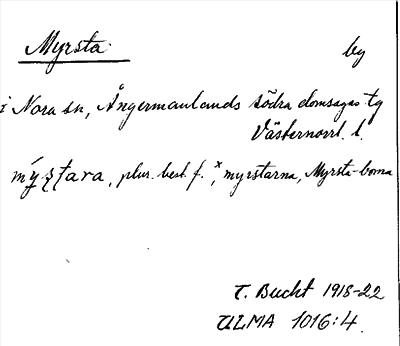 Myrsta by
i Nora sn, Ångermanlands södra domsagas tg
Västernorrl. l.
mýʂʈara, plur. best. f., ˣmyrstarna, Myrsta-borna
T. Bucht 1918-22
ULMA 1016:4.